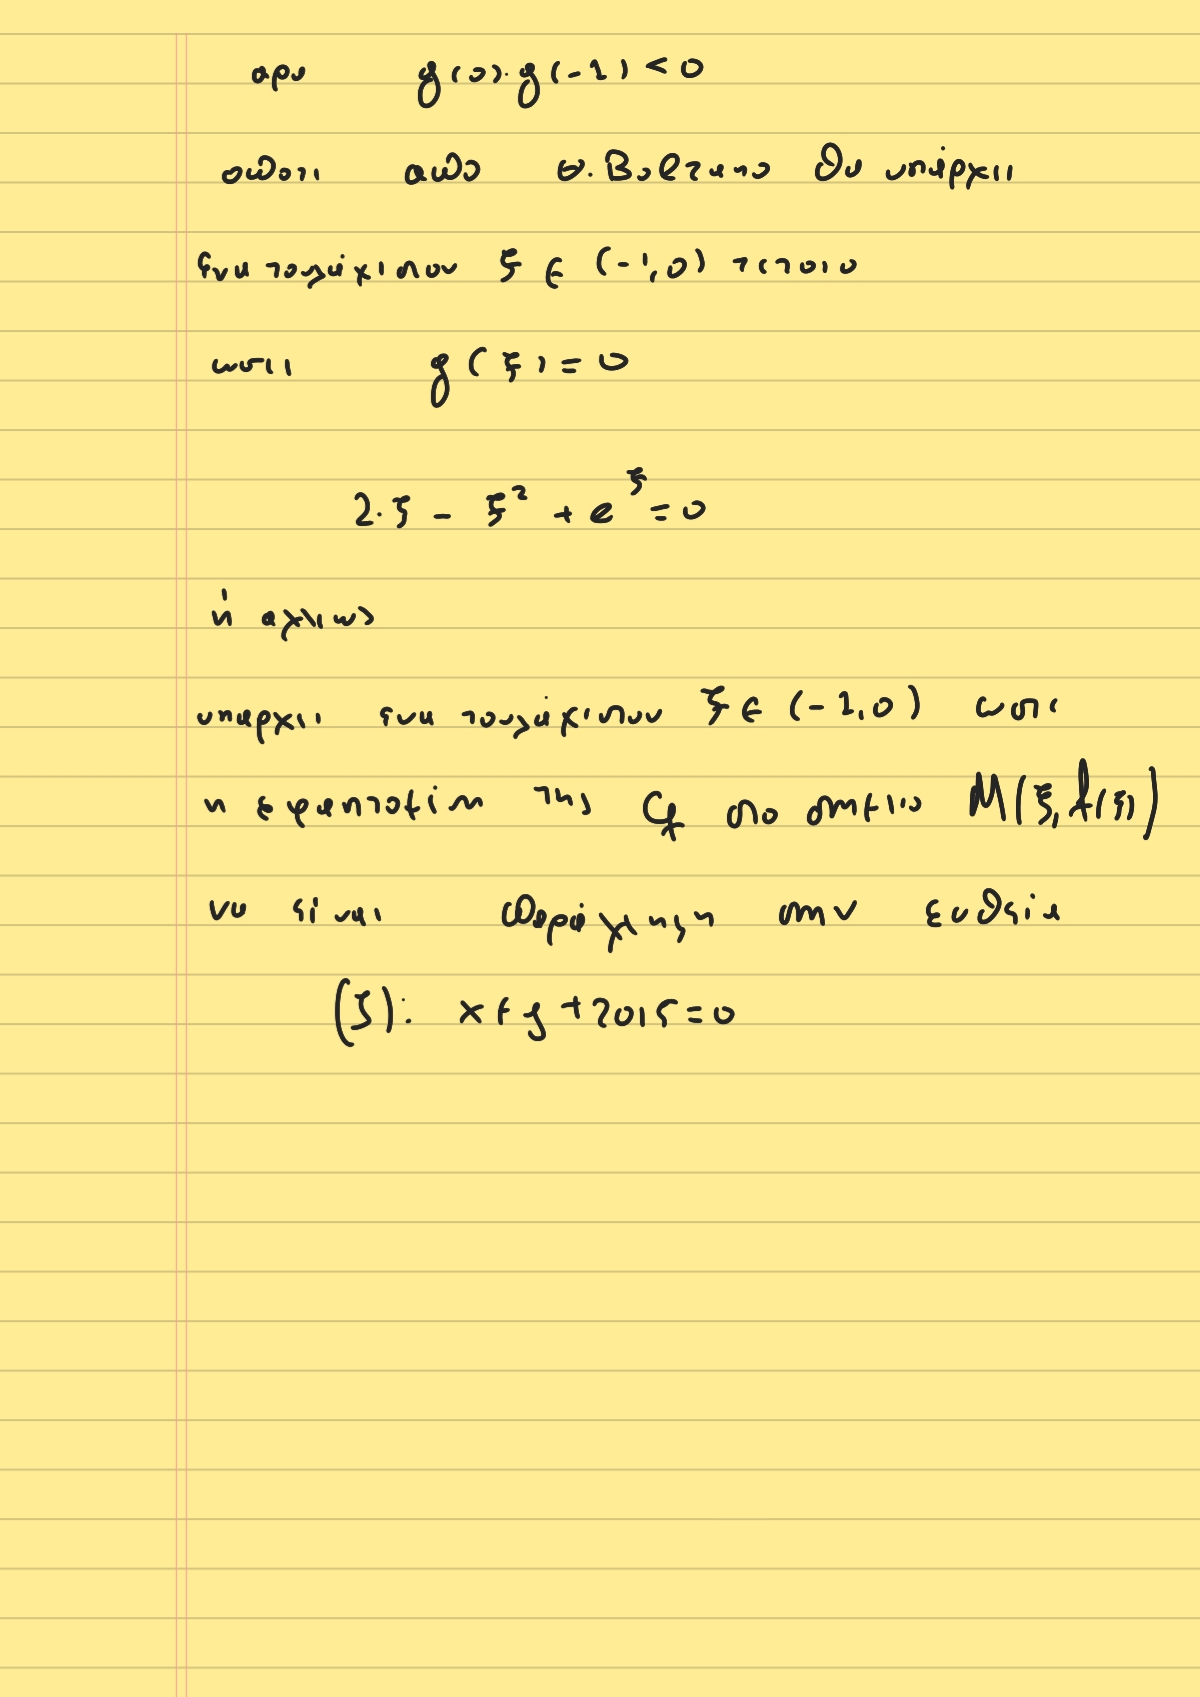 αρα g(0)·g(-1) < 0
οπότε από Θ. Bolzano θα υπάρχει
ένα τουλάχιστον ξ ∈ (-1,0) τέτοιο
ωστε g(ξ) = 0
2·ξ - ξ² + e^ξ = 0
ή αλλιως
υπαρχει ενα τουλάχιστον ξ ∈ (-1,0) ωστε
η εφαπτομένη της Cf στο σημείο M(ξ, f(ξ))
να είναι παράλληλη στην ευθεία
(ζ): x + y + 2015 = 0